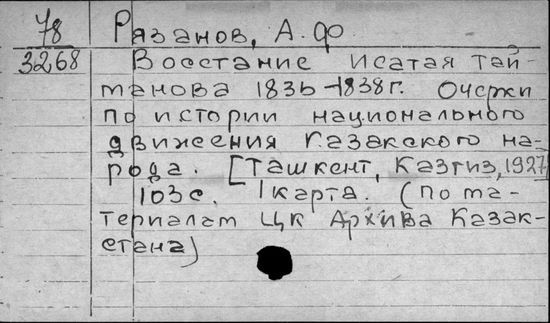 78 Рязанов, А. Ф.
3268 Восстание Исатая Тай-
манова 1836-1838 г. Очерки
по истории национального
движения казакского на-
рода. [Ташкент, Казгиз, 1927
103 с. 1 карта. (По ма-
териалам ЦК Архива Казак-
стана)